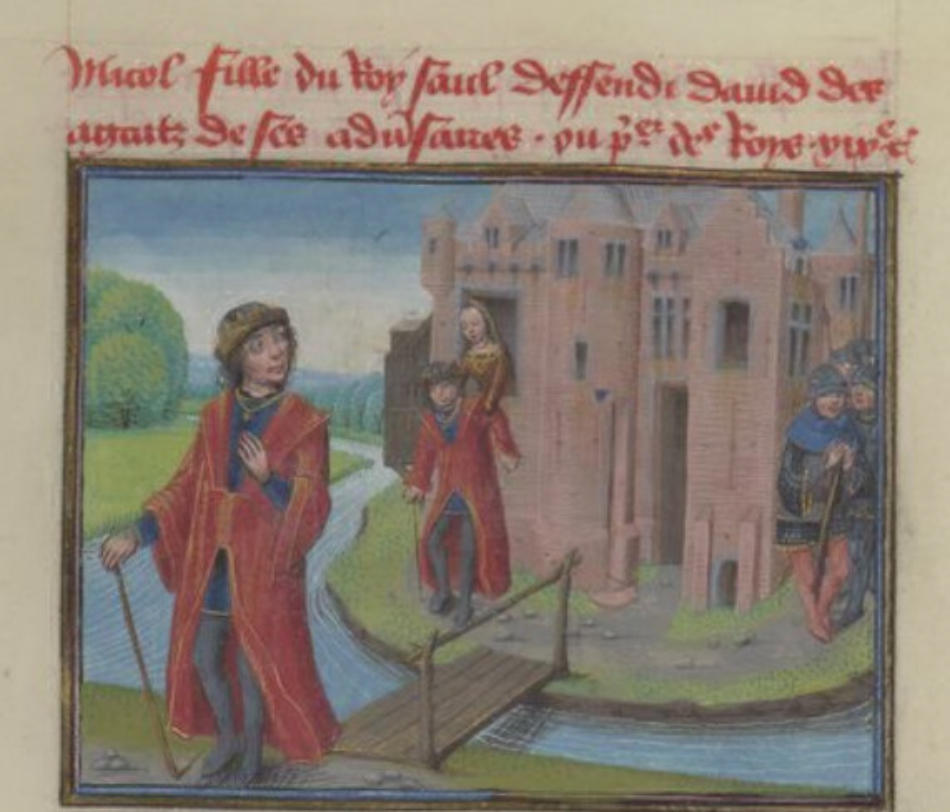 Micol fille du Roy saul deffendi david des
aguaitz de ses adv̄saires · ou p̄er des Roys · xix e c